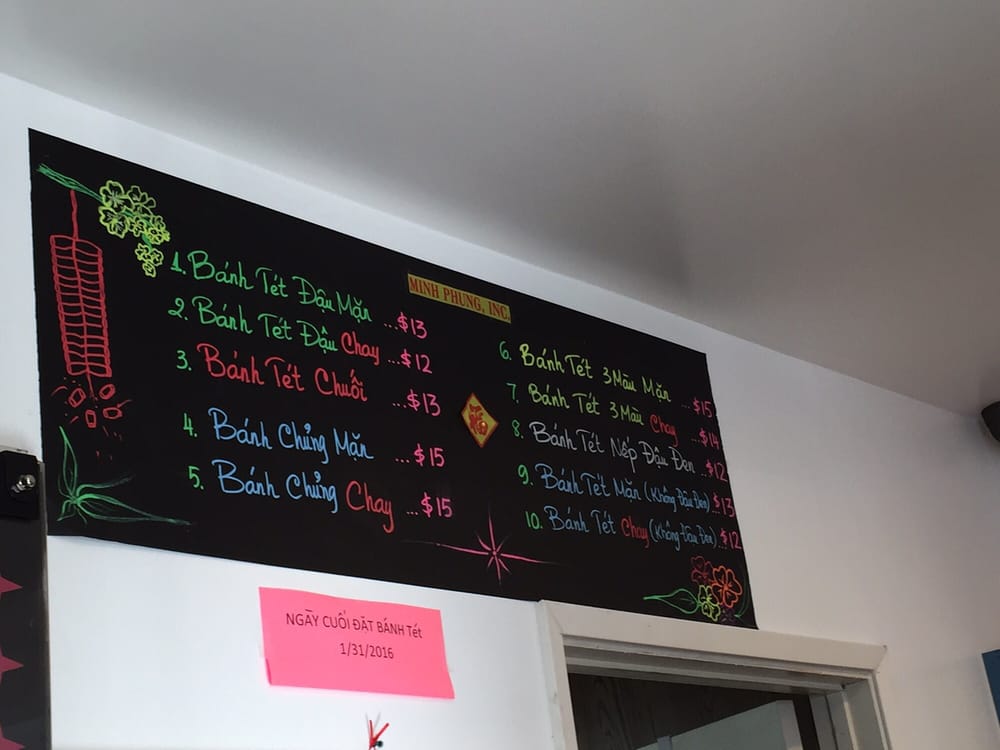 MINH PHUNG, INC.
1. Bánh Tét Đậu Mặn ...$13
2. Bánh Tét Đậu Chay ...$12
3. Bánh Tét Chuối ...$13
4. Bánh Chưng Mặn ...$15
5. Bánh Chưng Chay ...$15
6. Bánh Tét 3 Màu Mặn ...$15
7. Bánh Tét 3 Màu Chay ...$14
8. Bánh Tét Nếp Đậu Đen ...$12
9. Bánh Tét Mặn (Không Đậu Đen) $13
10. Bánh Tét Chay (Không Đậu Đen) ..$12
福
NGÀY CUỐI ĐẶT BÁNH Tét
1/31/2016